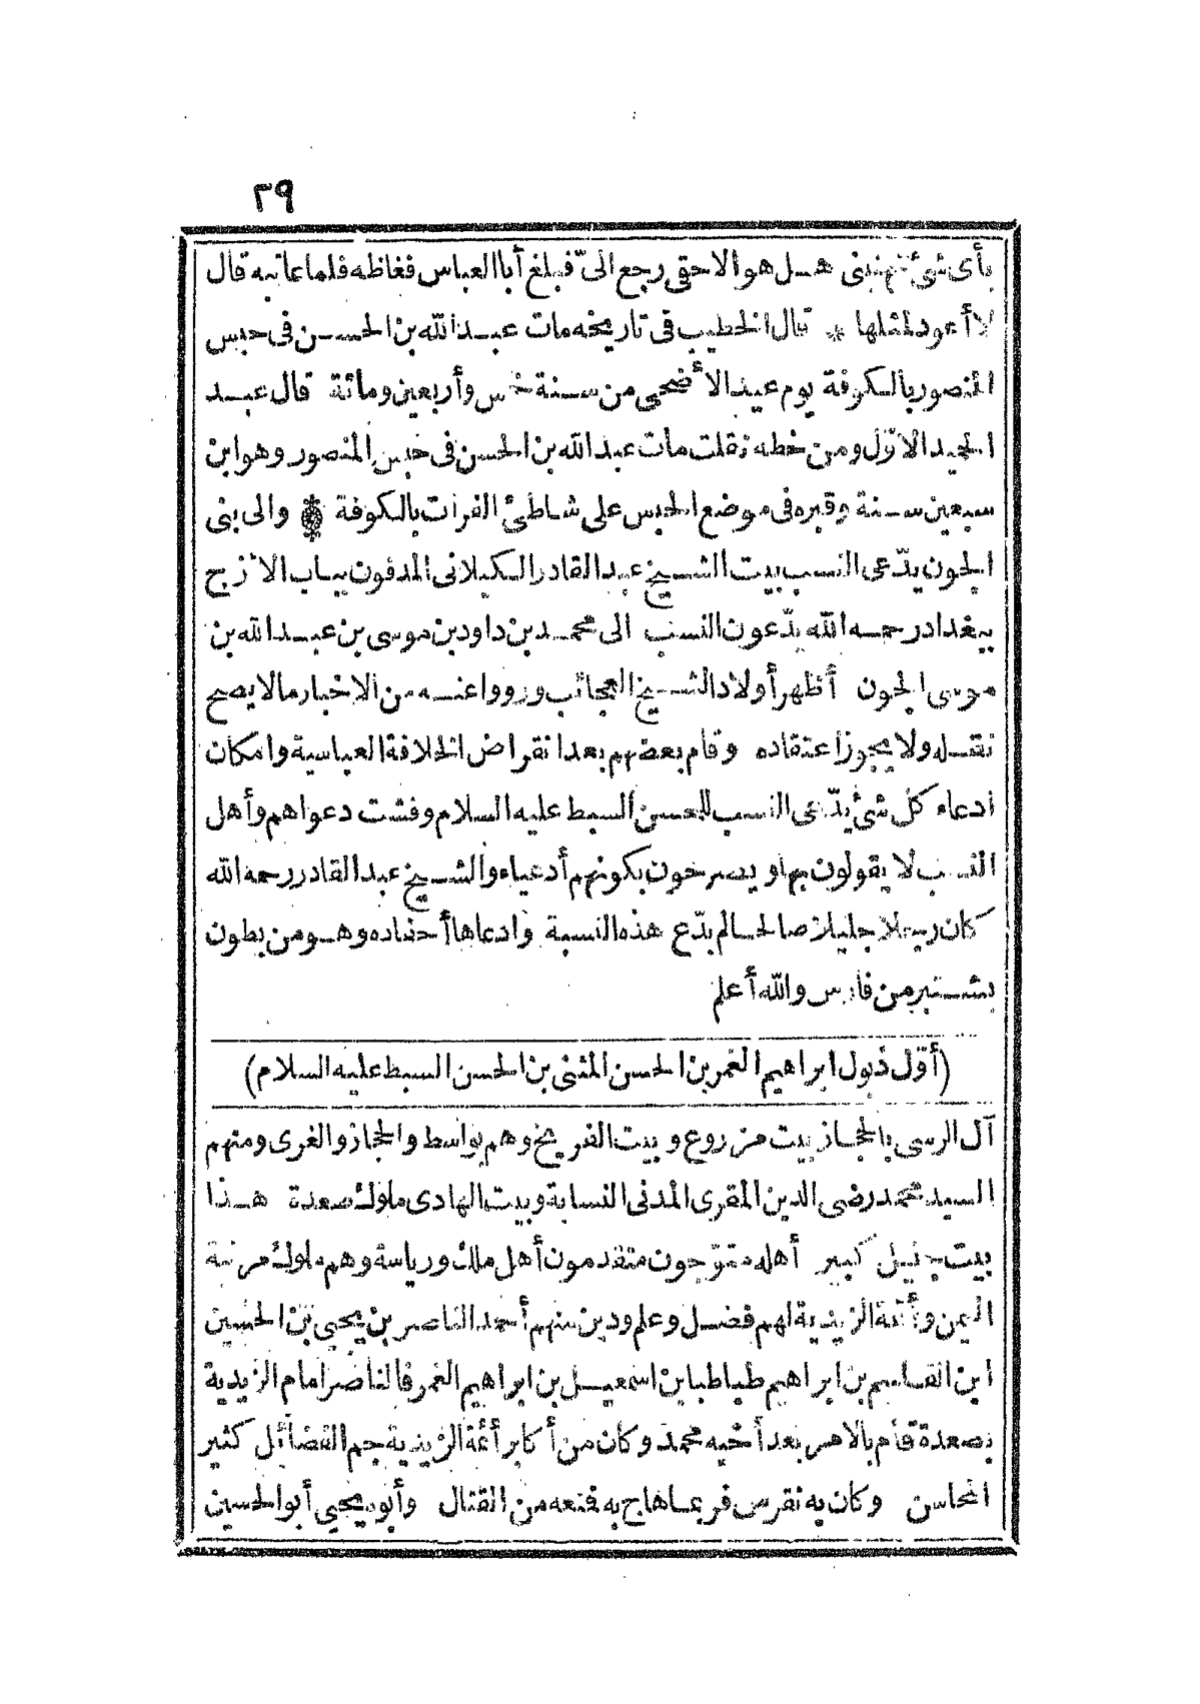 ٢٩
بأى شئ تهنينى هل هو الاحقى رجع الىّ فبلغ أبا العباس فغاظه فلما عاتبه قال
لا أعود لمثلها * قال الخطيب فى تاريخه مات عبد الله بن الحسن فى حبس
المنصور بالكوفة يوم عيد الأضحى من سنة خمس وأربعين ومائة قال عبد
الحميد الاوّل ومن خطه نقلت مات عبد الله بن الحسن فى حبس المنصور وهو ابن
سبعين سنة وقبره فى موضع الحبس على شاطئ الفرات بالكوفة * والى بنى
الجون يدّعى النسب بيت الشيخ عبد القادر الكيلانى المدفون بباب الازج
ببغداد رحمه الله يدّعون النسب الى محمد بن داود بن موسى بن عبد الله بن
موسى الجون أظهر أولاد الشيخ العجائب ورووا عنه من الاخبار مالا يصح
نقله ولا يجوز اعتقاده وقام بعضهم بعد انقراض الخلافة العباسية وامكان
ادعاء كل شئ يدّعى النسب للحسن السبط عليه السلام وفشت دعواهم وأهل
النسب لا يقولون بها ويصرحون بكونهم أدعياء والشيخ عبد القادر رحمه الله
كان رجلا جليلا صالحا لم يدّع هذه النسبة وادعاها أحفاده وهو من بطون
بشتبر من فارس والله أعلم
(أوّل ذيول ابراهيم الغمر بن الحسن المثنى بن الحسن السبط عليه السلام)
آل الرسى بالحجاز بيت من روع وبيت الفريخ وهم بواسط والحجاز والغرى ومنهم
السيد محمد رضى الدين المقرى المدنى النسابة وبيت الهادى ملوك صعدة هذا
بيت جليل كبير أهله متوّجون متقدمون أهل ملك ورياسة وهم ملوك مرتبة
اليمن وأئمة الزيدية لهم فضل وعلم ودين منهم أحمد الناصر بن يحيى بن الحسين
ابن القاسم بن ابراهيم طباطبا بن اسمعيل بن ابراهيم الغمر فالناصر امام الزيدية
بصعدة قام بالامر بعد أخيه محمد وكان من أكابر أئمة الزيدية جم الفضائل كثير
المحاسن وكان به نقرس فربما هاج به فمنعه من القتال وأبو يحيى أبو الحسين